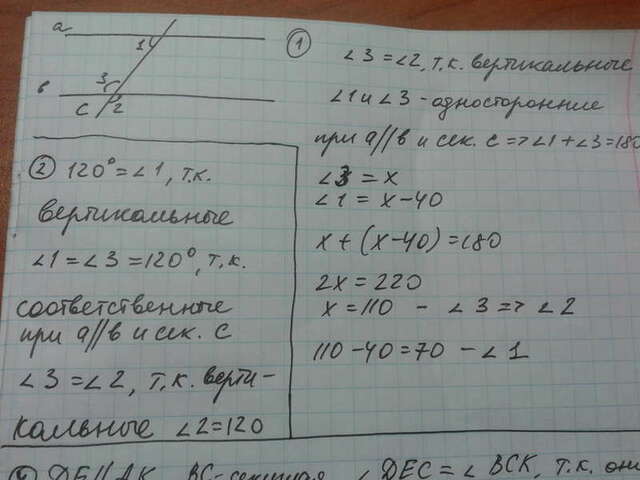 a
1
3
в
с 2
①
∠3=∠2, т.к. вертикальные
∠1 и ∠3 - односторонние
при a||в и сек. с => ∠1+∠3=180
∠3 = x
∠1 = x-40
x+(x-40)=180
2x=220
x=110 - ∠3 => ∠2
110-40=70 - ∠1
② 120°=∠1, т.к.
вертикальные
∠1=∠3=120°, т.к.
соответственные
при a||в и сек. с
∠3=∠2, т.к. верти-
кальные ∠2=120
DE||AK BC-секущая ∠DEC=∠BCK, т.к. они